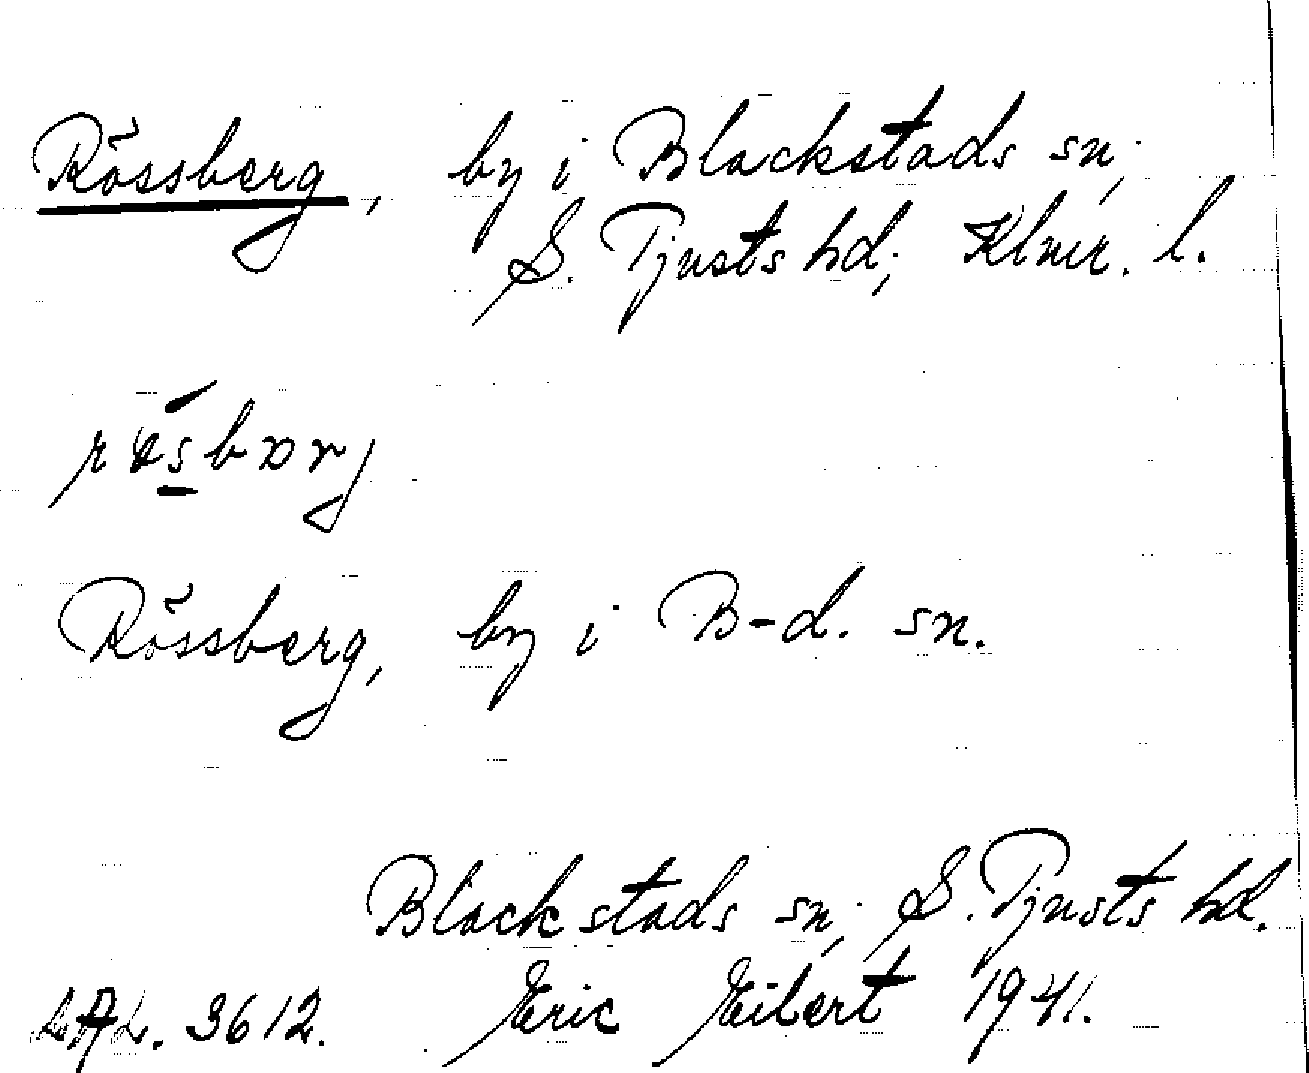 Rössberg, by i Blackstads sn;
S. Tjusts hd; Klmr. l.
Rössberg, by i B-d. sn.
Blackstads sn; S. Tjusts hd.
LAL. 3612. Eric Eilert 1941.